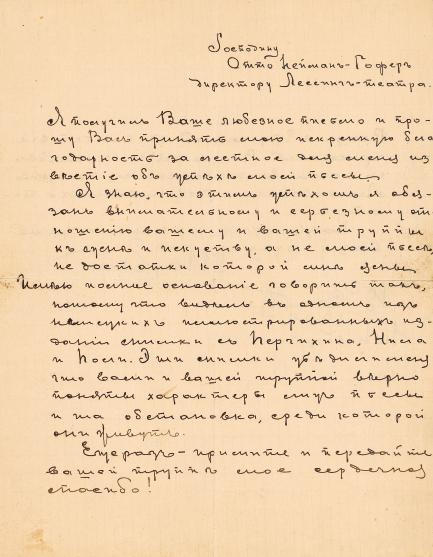 Господину
Отто Нейманъ-Гоферъ
директору Лессингъ-театра.
Я получилъ Ваше любезное письмо и про-
шу Васъ принять мою искреннюю бла
годарность за лестное для меня из
вѣстіе объ успѣхѣ моей пьесы.
Я знаю, что этимъ успѣхомъ я обя-
занъ внимательному и серьезному от
ношенію вашему и вашей труппы
къ дѣлу и искуству, а не моей пьесѣ,
недостатки которой мнѣ ясны.
Имѣю полное основаніе говорить такъ,
потому что видѣлъ въ одномъ изъ
немецкихъ иллюстрированныхъ из-
даній снимки съ Перчихина, Нила
и Поли. Эти снимки убѣдили меня
что вами и вашей труппой вѣрно
поняты характеры лицъ пьесы
и та обстановка, среди которой
они живутъ.
Ещеразъ - примите и передайте
вашей труппѣ мое сердечное
спасибо!